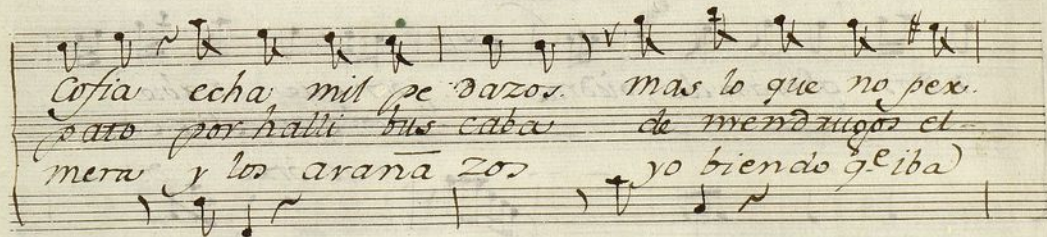 Cofia echa mil pe dazos. mas lo que no per.
pato por halli bus caba de mendrugos el
mera y los arana zos yo biendo q.e iba